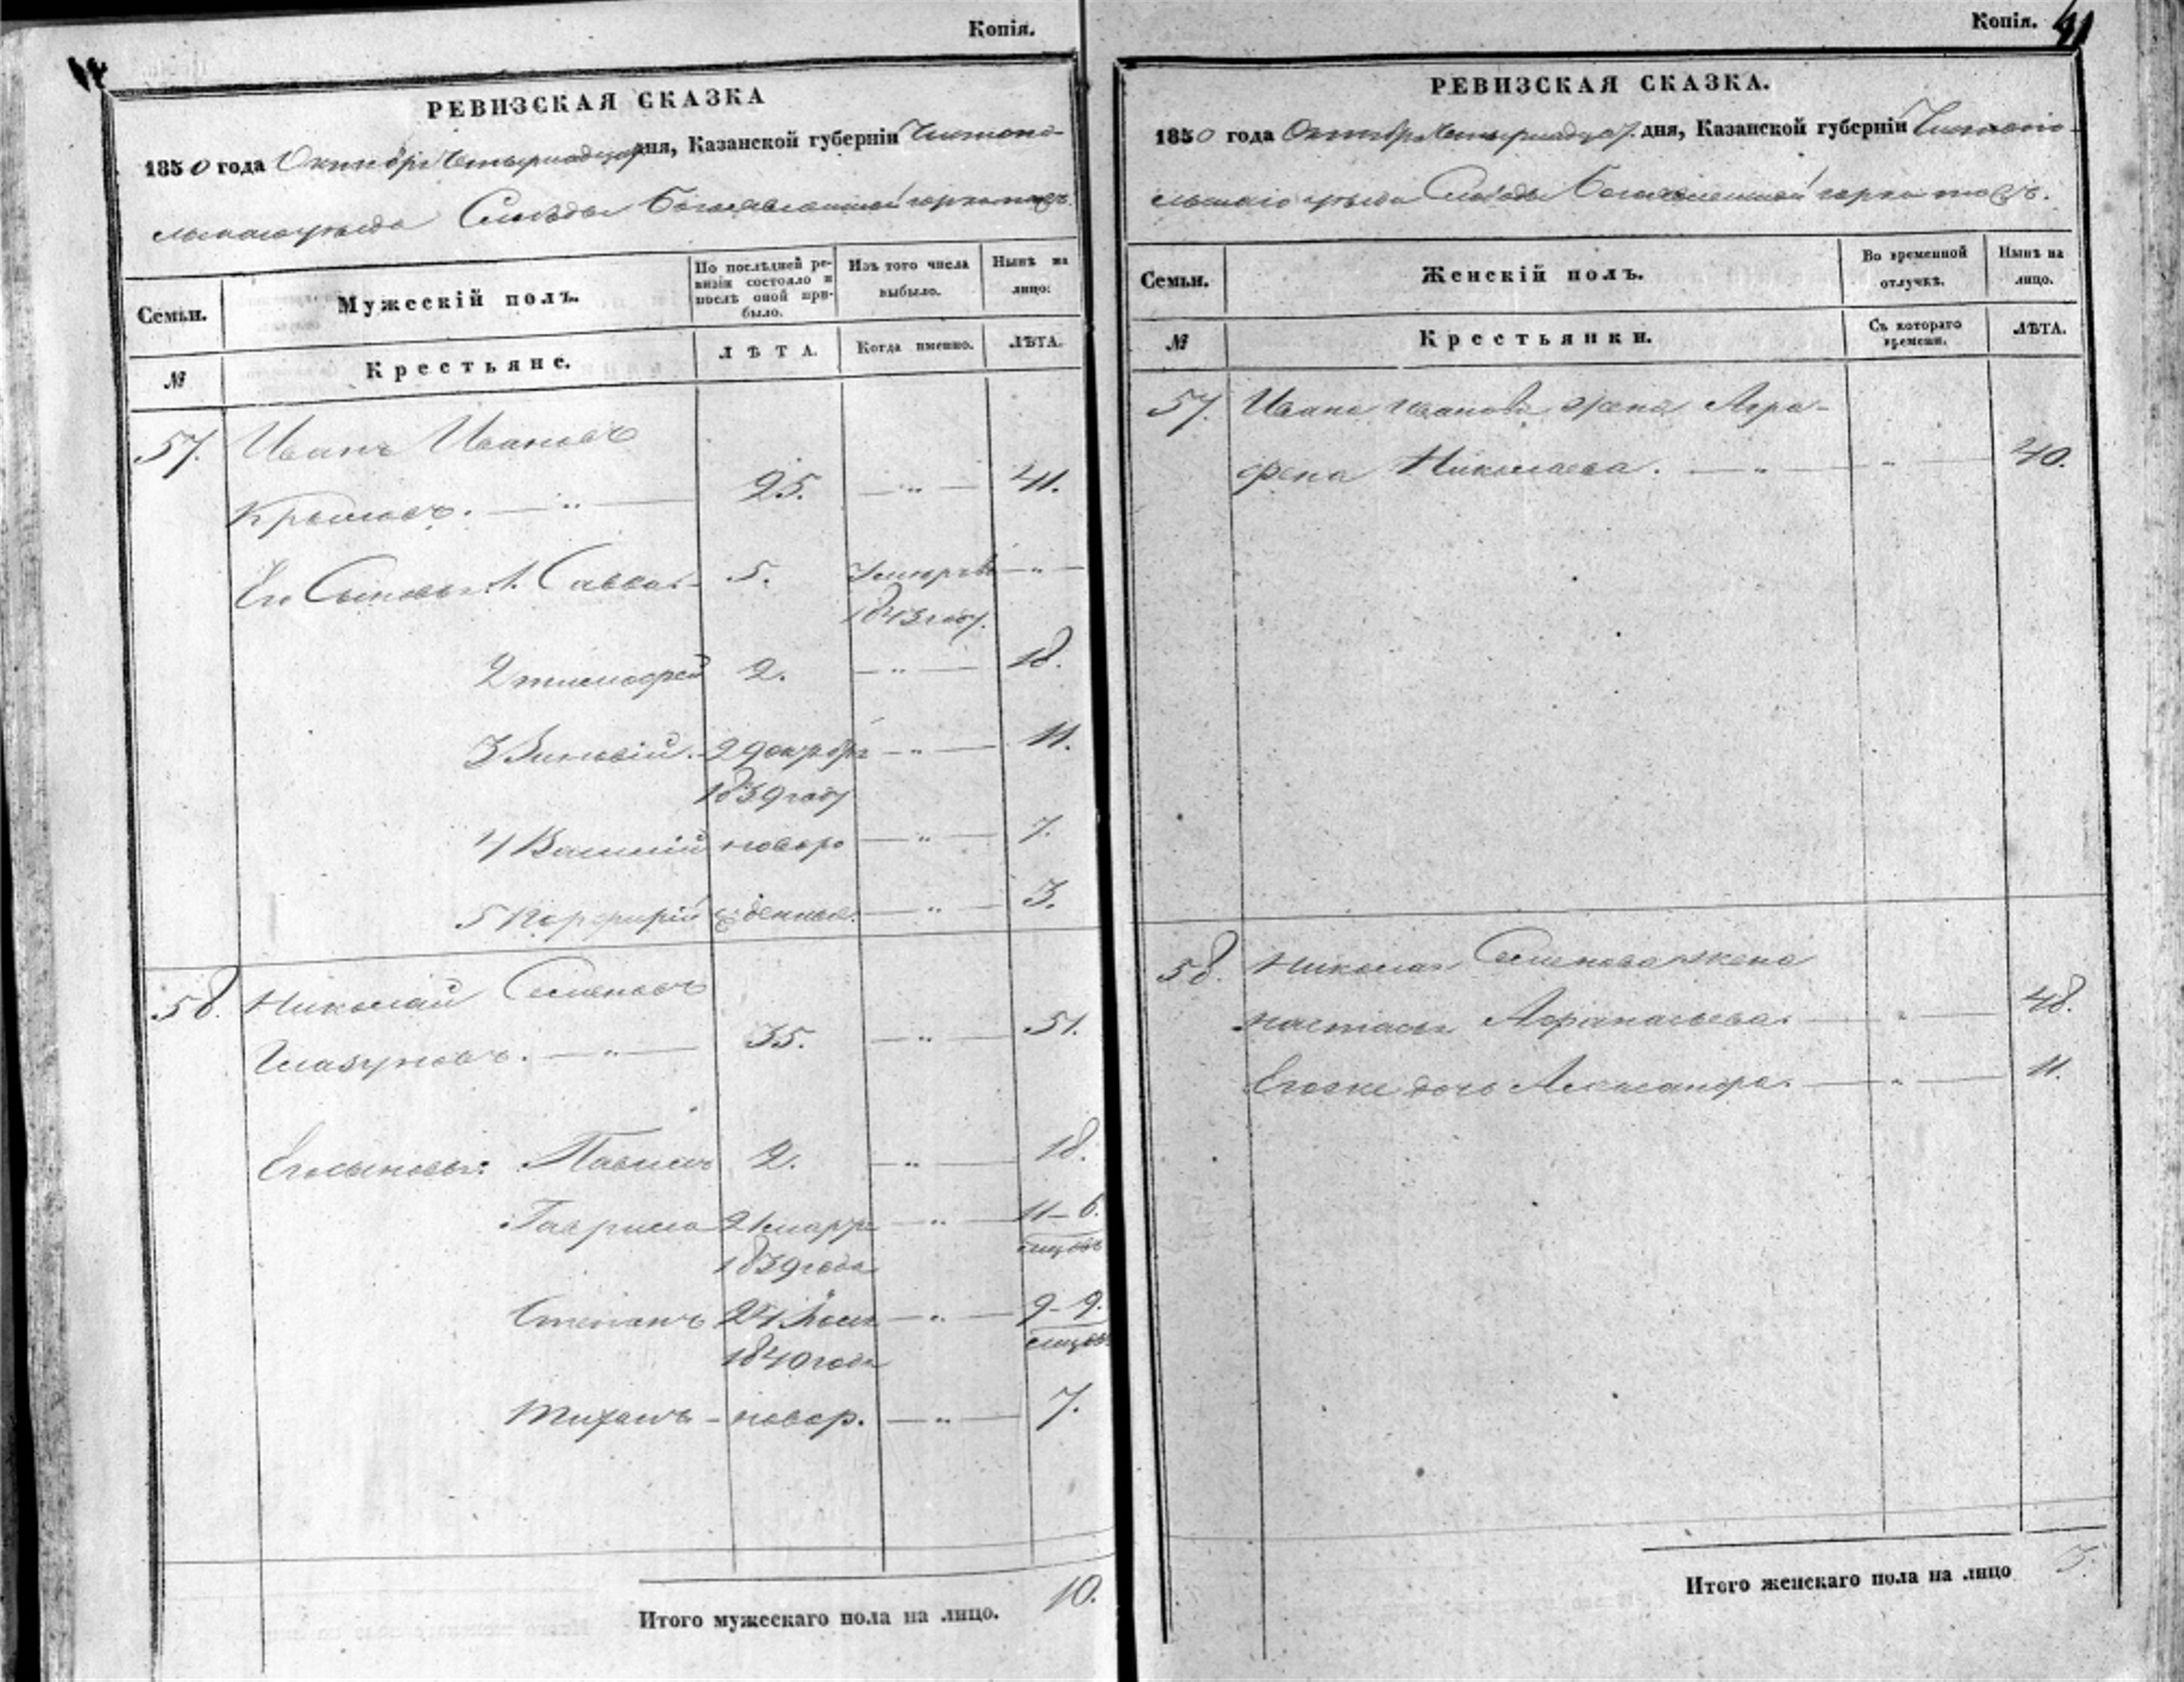 Копія.
РЕВИЗСКАЯ СКАЗКА
1850 года Октября Четырнадцат дня, Казанской губерніи Чистопо-
льскаго уѣзда Слободы Богоявленской горка тожъ.
Семьи.
Мужескій полъ.
По послѣдней ре-
визіи состояло и
послѣ оной при-
было.
Изъ того числа
выбыло.
Нынѣ на
лицо:
№
Крестьяне.
ЛѢТА.
Когда именно.
ЛѢТА.
57. Иванъ Ивановъ
Крыловъ. — " — 25. — " — 41.
Его Сыновья 1. Савва. 5. Умеръ въ — " —
1843 году.
2 тимофей 2. — " — 18.
3 Зиновій. 29 октября — " — 11.
1839 году
4 Василій новоро — " — 7.
5 Порфирій жденные. — " — 3.
58. Николай Семеновъ
Глазуновъ. — " — 35. — " — 51.
Его сыновья: Павелъ 2. — " — 18.
Гаврила 21 марта — " — 11 - 6.
1839 года мѣсяцовъ
Степанъ 24 — " — 9 - 9.
1840 года мѣсяцовъ
Тихонъ - новор. — " — 7.
Итого мужескаго пола на лицо. 10.
Копія. 41
РЕВИЗСКАЯ СКАЗКА.
1850 года Октября Четырнадцат. дня, Казанской губерніи Чистопо-
льскаго уѣзда Слободы Богоявленской горка тожъ.
Семьи.
Женскій полъ.
Во временной
отлучкѣ.
Нынѣ на
лицо.
№
Крестьянки.
Съ котораго
времени.
ЛѢТА.
57. Ивана Иванова жена Агра-
фена Николаева. — " — " — 40.
58. Николая Семенова жена
настасья Афанасьева. — " — 48.
Его же дочь Александра. — " — 11.
Итого женскаго пола на лицо 3.